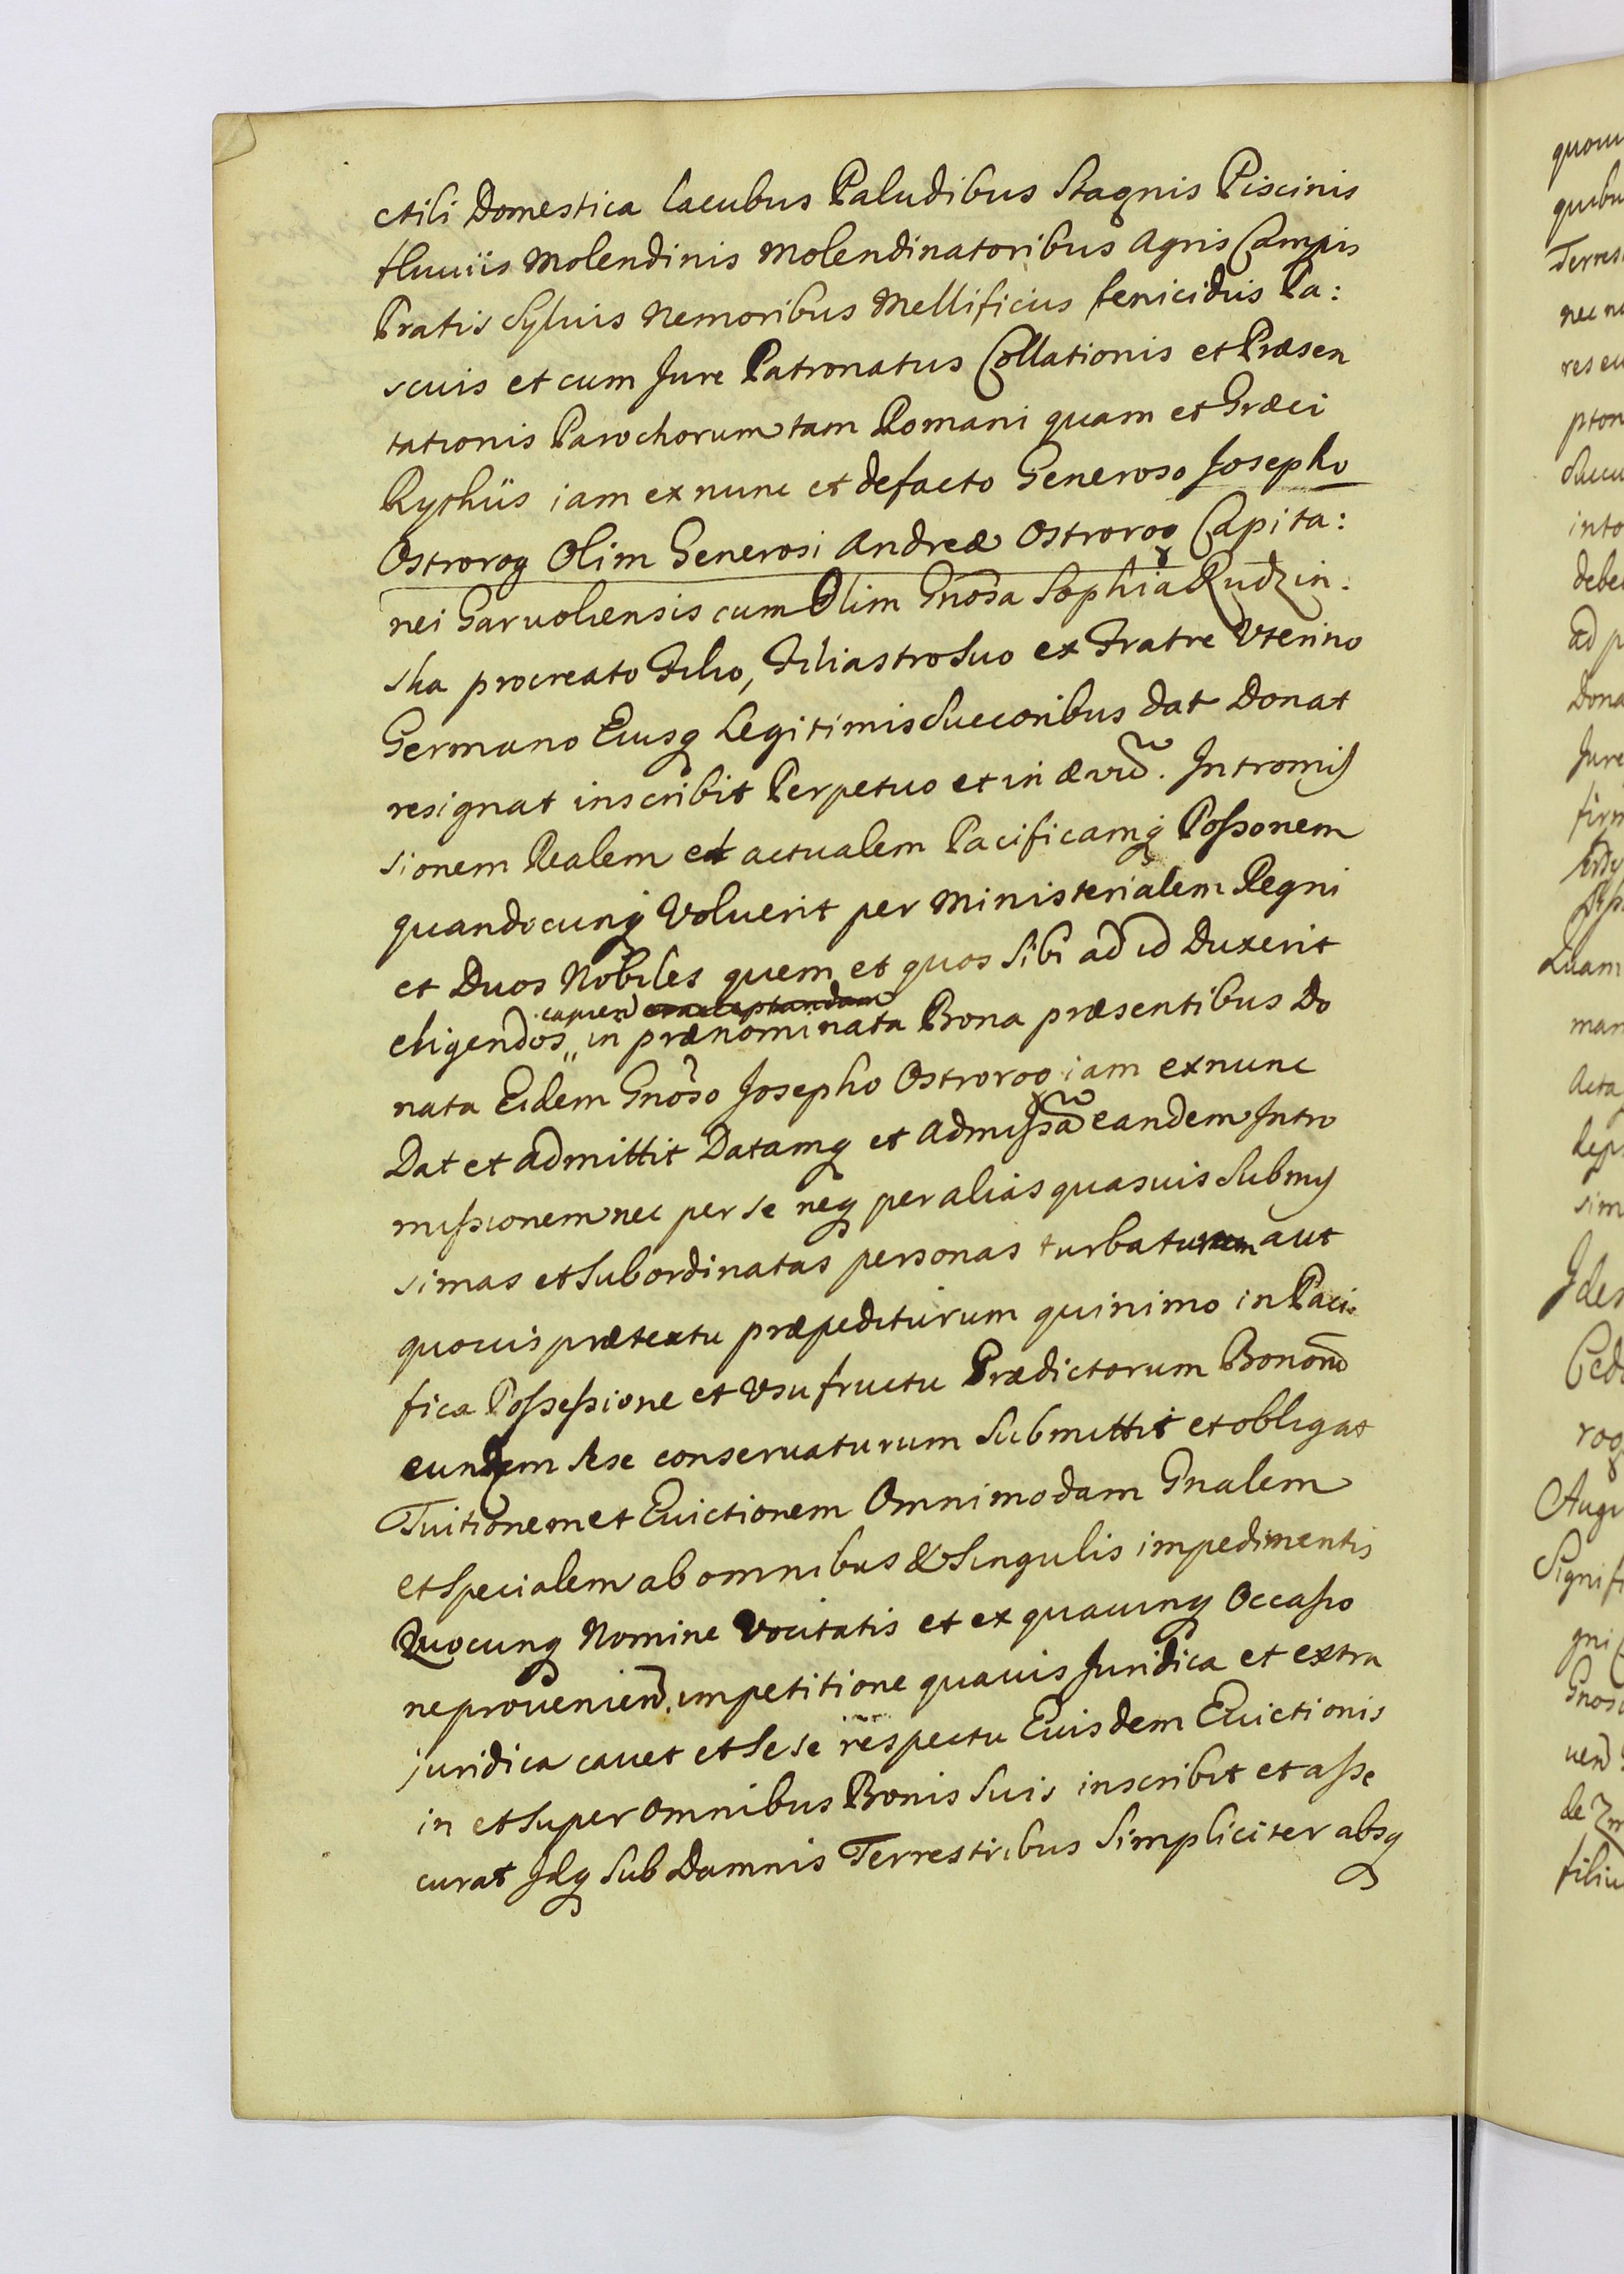 ctili Domestica lacubus Paludibus Stagnis Piscinis
fluuiis Molendinis Molendinatoribus Agris Campis
Pratis Syluis Nemoribus Mellificius fenicidus Pa:
scuis et cum Jure Patronatus Collationis et Præsen
tationis Parochorum tam Romani quam et Græci
Rythiis iam ex nunc et defacto Generoso Josepho
Ostrorog Olim Generosi Andreæ Ostrorog Capita:
nei Garuoliensis cum Olim Gnosa Sophia Rudzin:
ska procreato Filio, Filiastro suo ex Fratre Vterino
Germano Eiusq Legitimis Succoribus dat Donat
resignat inscribit Perpetuo et in ævũ. Intromis
sionem Realem et actualem Pacificamq Possonem
quandocunq Voluerit per Ministerialem Regni
et Duos Nobiles quem et quos Sibi ad id Duxerit
capien
eligendos in prænominata Bona præsentibus Do
nata Eidem Gnoso Josepho Ostrorog iam exnunc
Dat et admittit Datamq et Admissã eandem Intro
missionem nec per se neq per alias quasuis Submis
simas et Subordinatas personas turbaturum aut
quouis prætextu præpediturum quinimo in Paci
fica Possessione et Vsufructu Prædictorum Bonorũ
eundem Sese conseruaturum Submittit et obligat
Tuitionem et Euictionem Omnimodam Gnalem
et Specialem ab omnibus & Singulis impedimentis
Quocunq Nomine Vocitatis et ex quacunq Occasio
ne prouenien. impetitione quauis Juridica et extra
juridica cauet et Sese respectu Euisdem Euictionis
in et Super Omnibus Bonis Suis inscribit et asse
curat Idq Sub Damnis Terrestribus Simpliciter absq